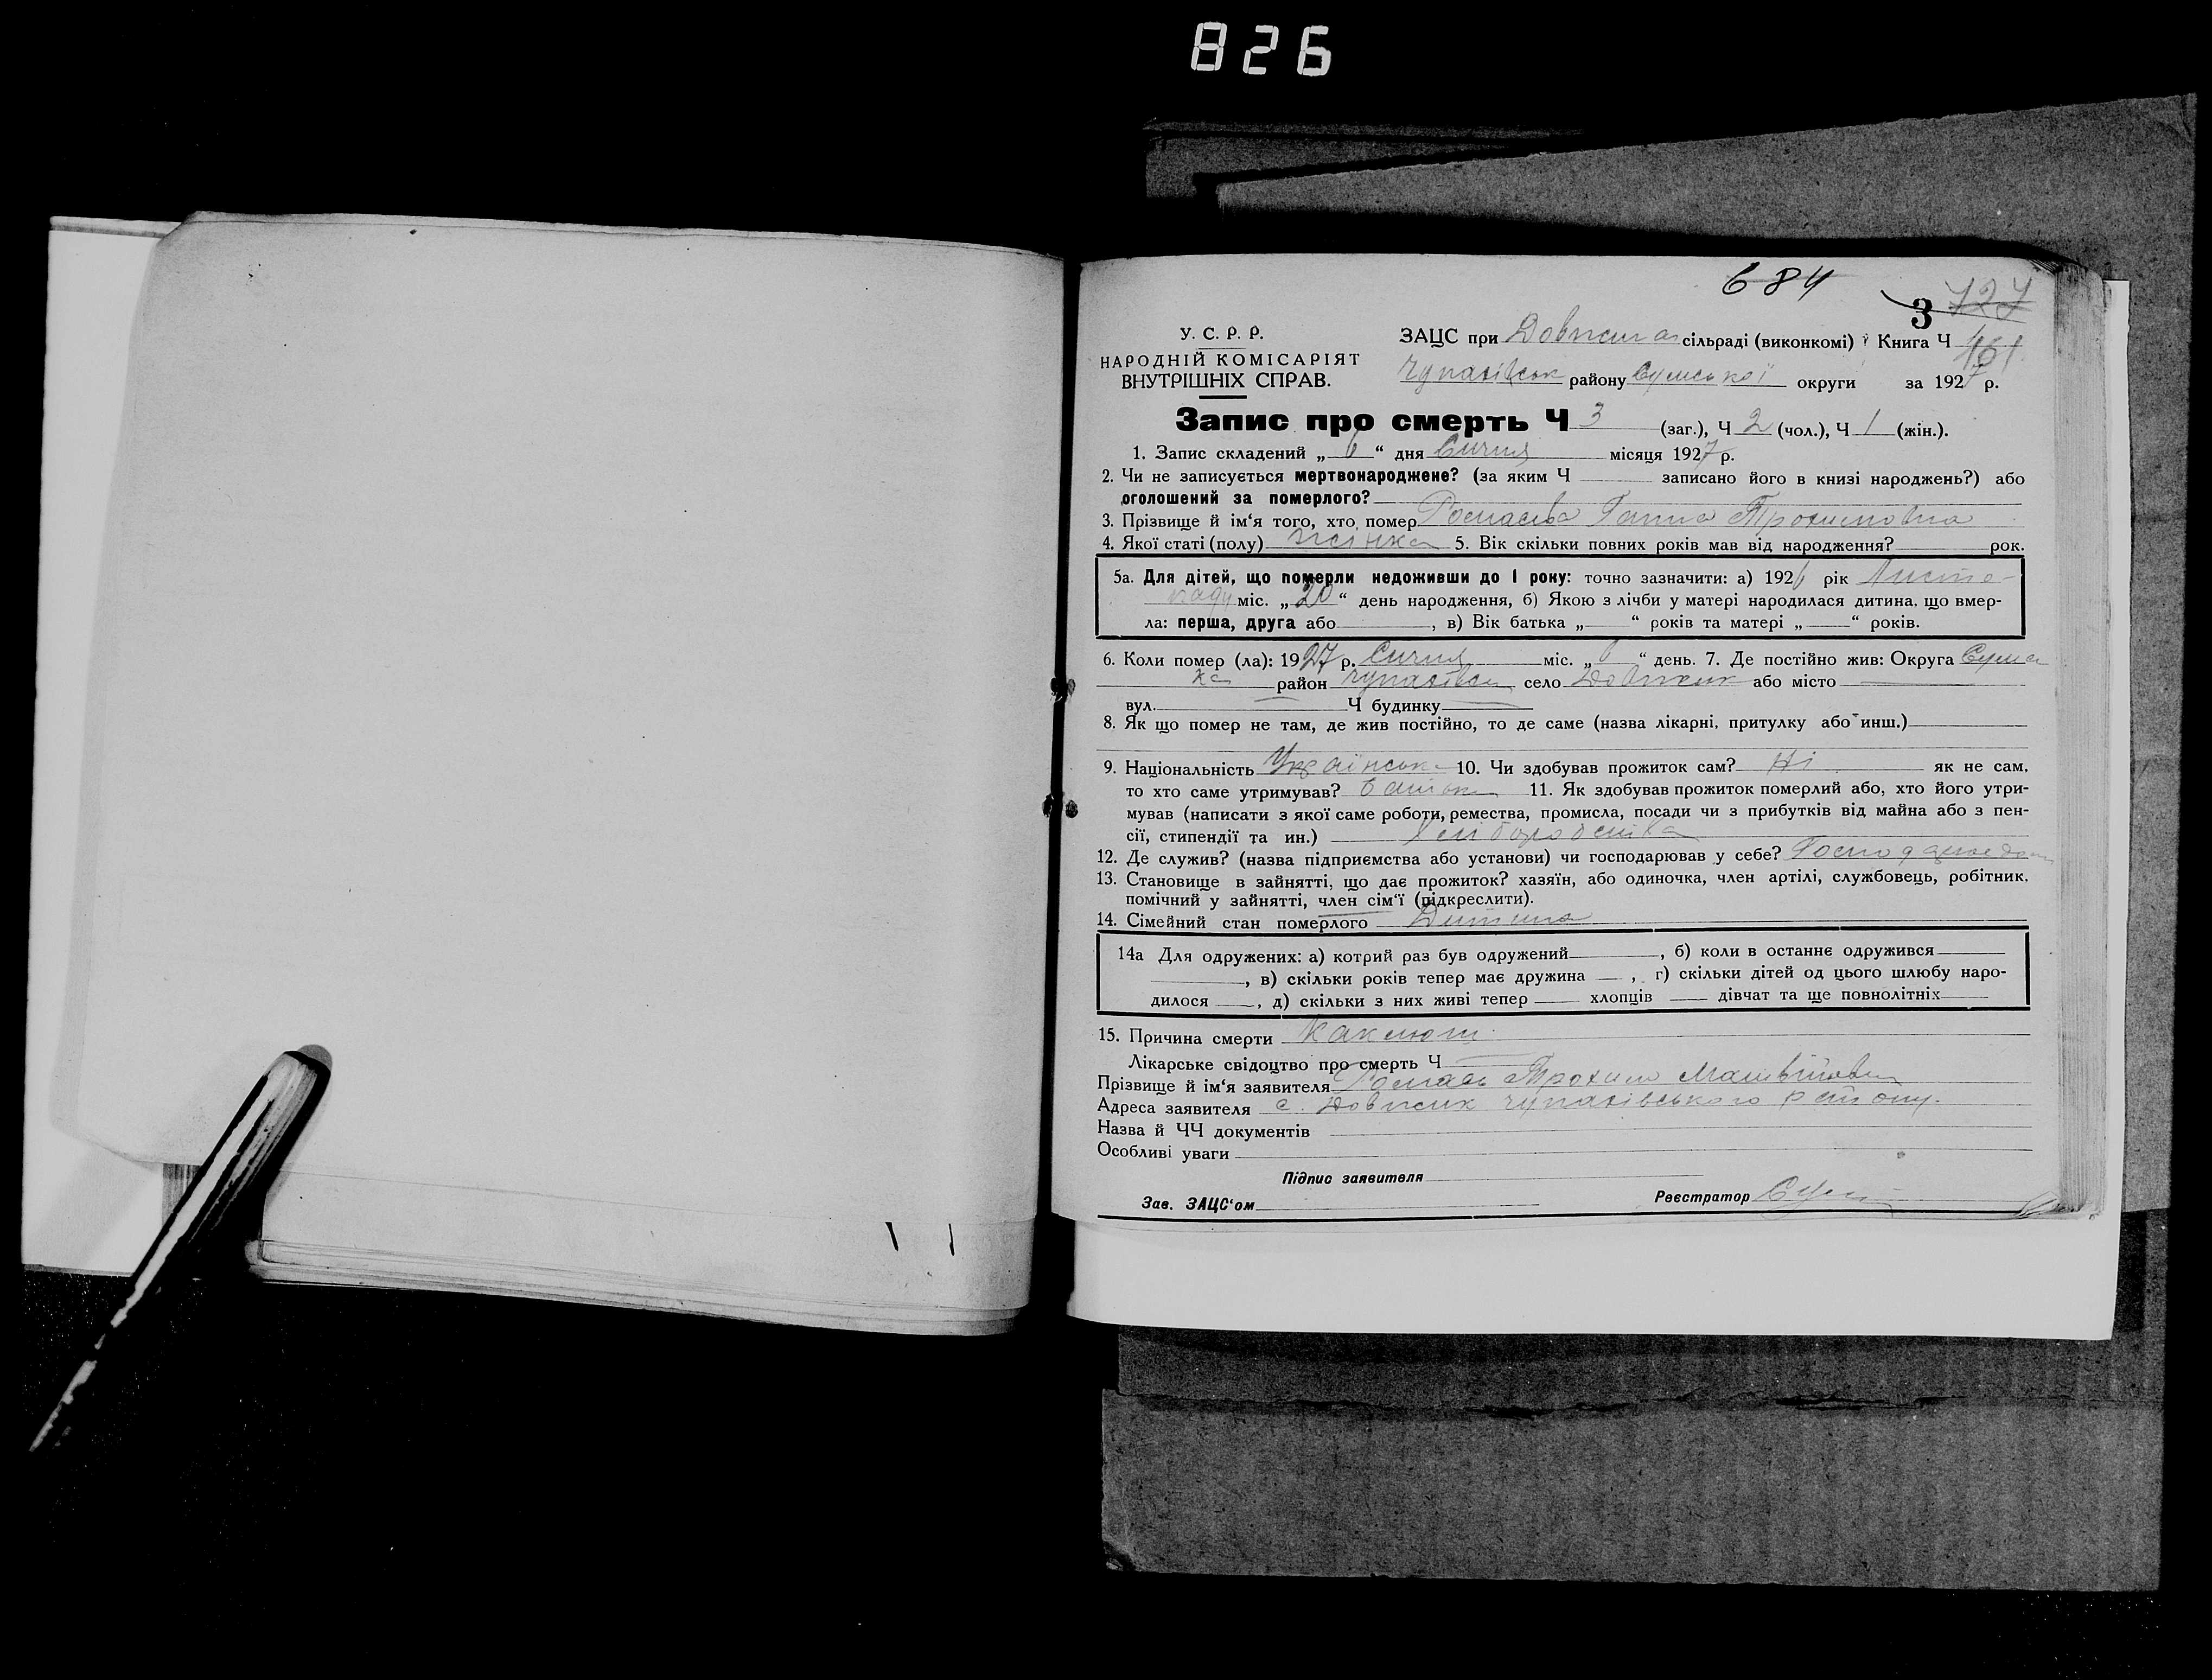 826
684
3 727
У. С. Р. Р.
НАРОДНІЙ КОМІСАРІЯТ
ВНУТРІШНІХ СПРАВ.
ЗАЦС при сільраді (виконкомі) Книга Ч 161
Чупахівськ району Сумської округи за 1927 р.
Запис про смерть Ч 3 (заг.), Ч 2 (чол.), Ч 1 (жін.).
1. Запис складений „ 6 “ дня Січня місяця 1927 р.
2. Чи не записується мертвонароджене? (за яким Ч записано його в книзі народжень?) або
оголошений за померлого?
3. Прізвище й ім‘я того, хто помер Ганна Трохимовна
4. Якої статі (полу) жінка 5. Вік скільки повних років мав від народження? рок.
5а. Для дітей, що померли недоживши до 1 року: точно зазначити: а) 1926 рік Листо-
паду міс. „ 20 “ день народження, б) Якою з лічби у матері народилася дитина, що вмер-
ла: перша, друга або , в) Вік батька „ “ років та матері „ “ років.
6. Коли помер (ла): 1927 р. Січня міс. „ 6 “ день. 7. Де постійно жив: Округа Сумс
ка район Чупахівськ село Довжик або місто
вул. Ч будинку
8. Як що помер не там, де жив постійно, то де саме (назва лікарні, притулку або инш.)
9. Національність Українська 10. Чи здобував прожиток сам? Ні як не сам,
то хто саме утримував? батько 11. Як здобував прожиток померлий або, хто його утри-
мував (написати з якої саме роботи, ремества, промисла, посади чи з прибутків від майна або з пен-
сії, стипендії та ин.) Хліборобства
12. Де служив? (назва підприємства або установи) чи господарював у себе?
13. Становище в зайнятті, що дає прожиток? хазяїн, або одиночка, член артілі, службовець, робітник,
помічний у зайнятті, член сім‘ї (підкреслити).
14. Сімейний стан померлого Дитина
14а Для одружених: а) котрий раз був одружений , б) коли в останнє одружився
, в) скільки років тепер має дружина , г) скільки дітей од цього шлюбу наро-
дилося , д) скільки з них живі тепер хлопців дівчат та ще повнолітніх
15. Причина смерти Каклюш
Лікарське свідоцтво про смерть Ч
Прізвище й ім‘я заявителя Трохим Матвійович
Адреса заявителя с. Довжик Чупахівського району.
Назва й ЧЧ документів
Особливі уваги
Підпис заявителя
Зав. ЗАЦС‘ом Реєстратор